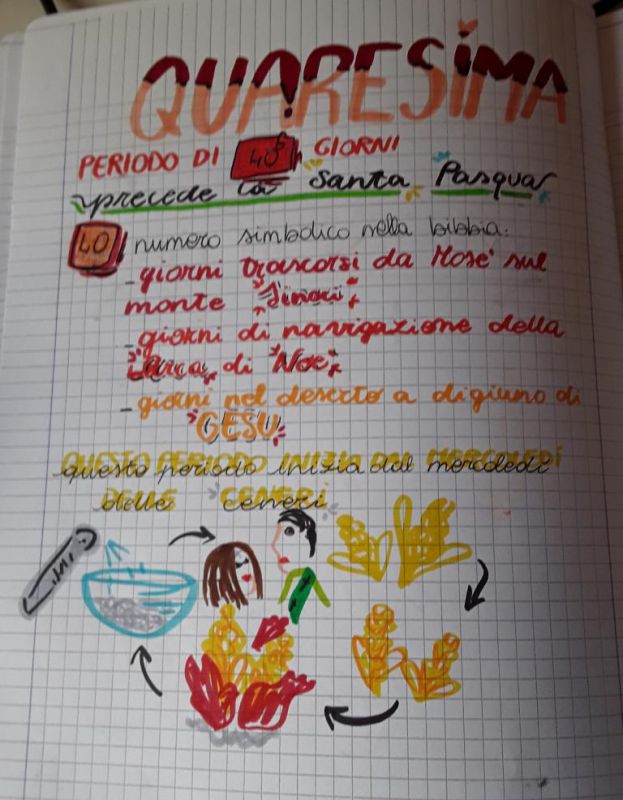 QUARESIMA
PERIODO DI 40 GIORNI
precede la Santa Pasqua
40 numero simbolico nella bibbia:
-giorni trascorsi da Mosè sul
monte Sinai
-giorni di navigazione della
arca di Noè
-giorni nel deserto a digiuno di
GESU
questo periodo inizia dal mercoledì
delle ceneri